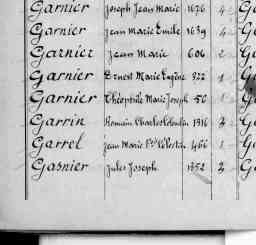 Garnier Joseph Jean Marie 1676 4
Garnier Jean Marie Emile 1639 4
Garnier Jean Marie 606 2
Garnier Ernest Marie Eugène 922 1
Garnier Théophile Marie Joseph 50 1
Garrin Romain Charles 1316
Garrel Jean Marie Célestin 466 1
Gasnier Jules Joseph 1352 2